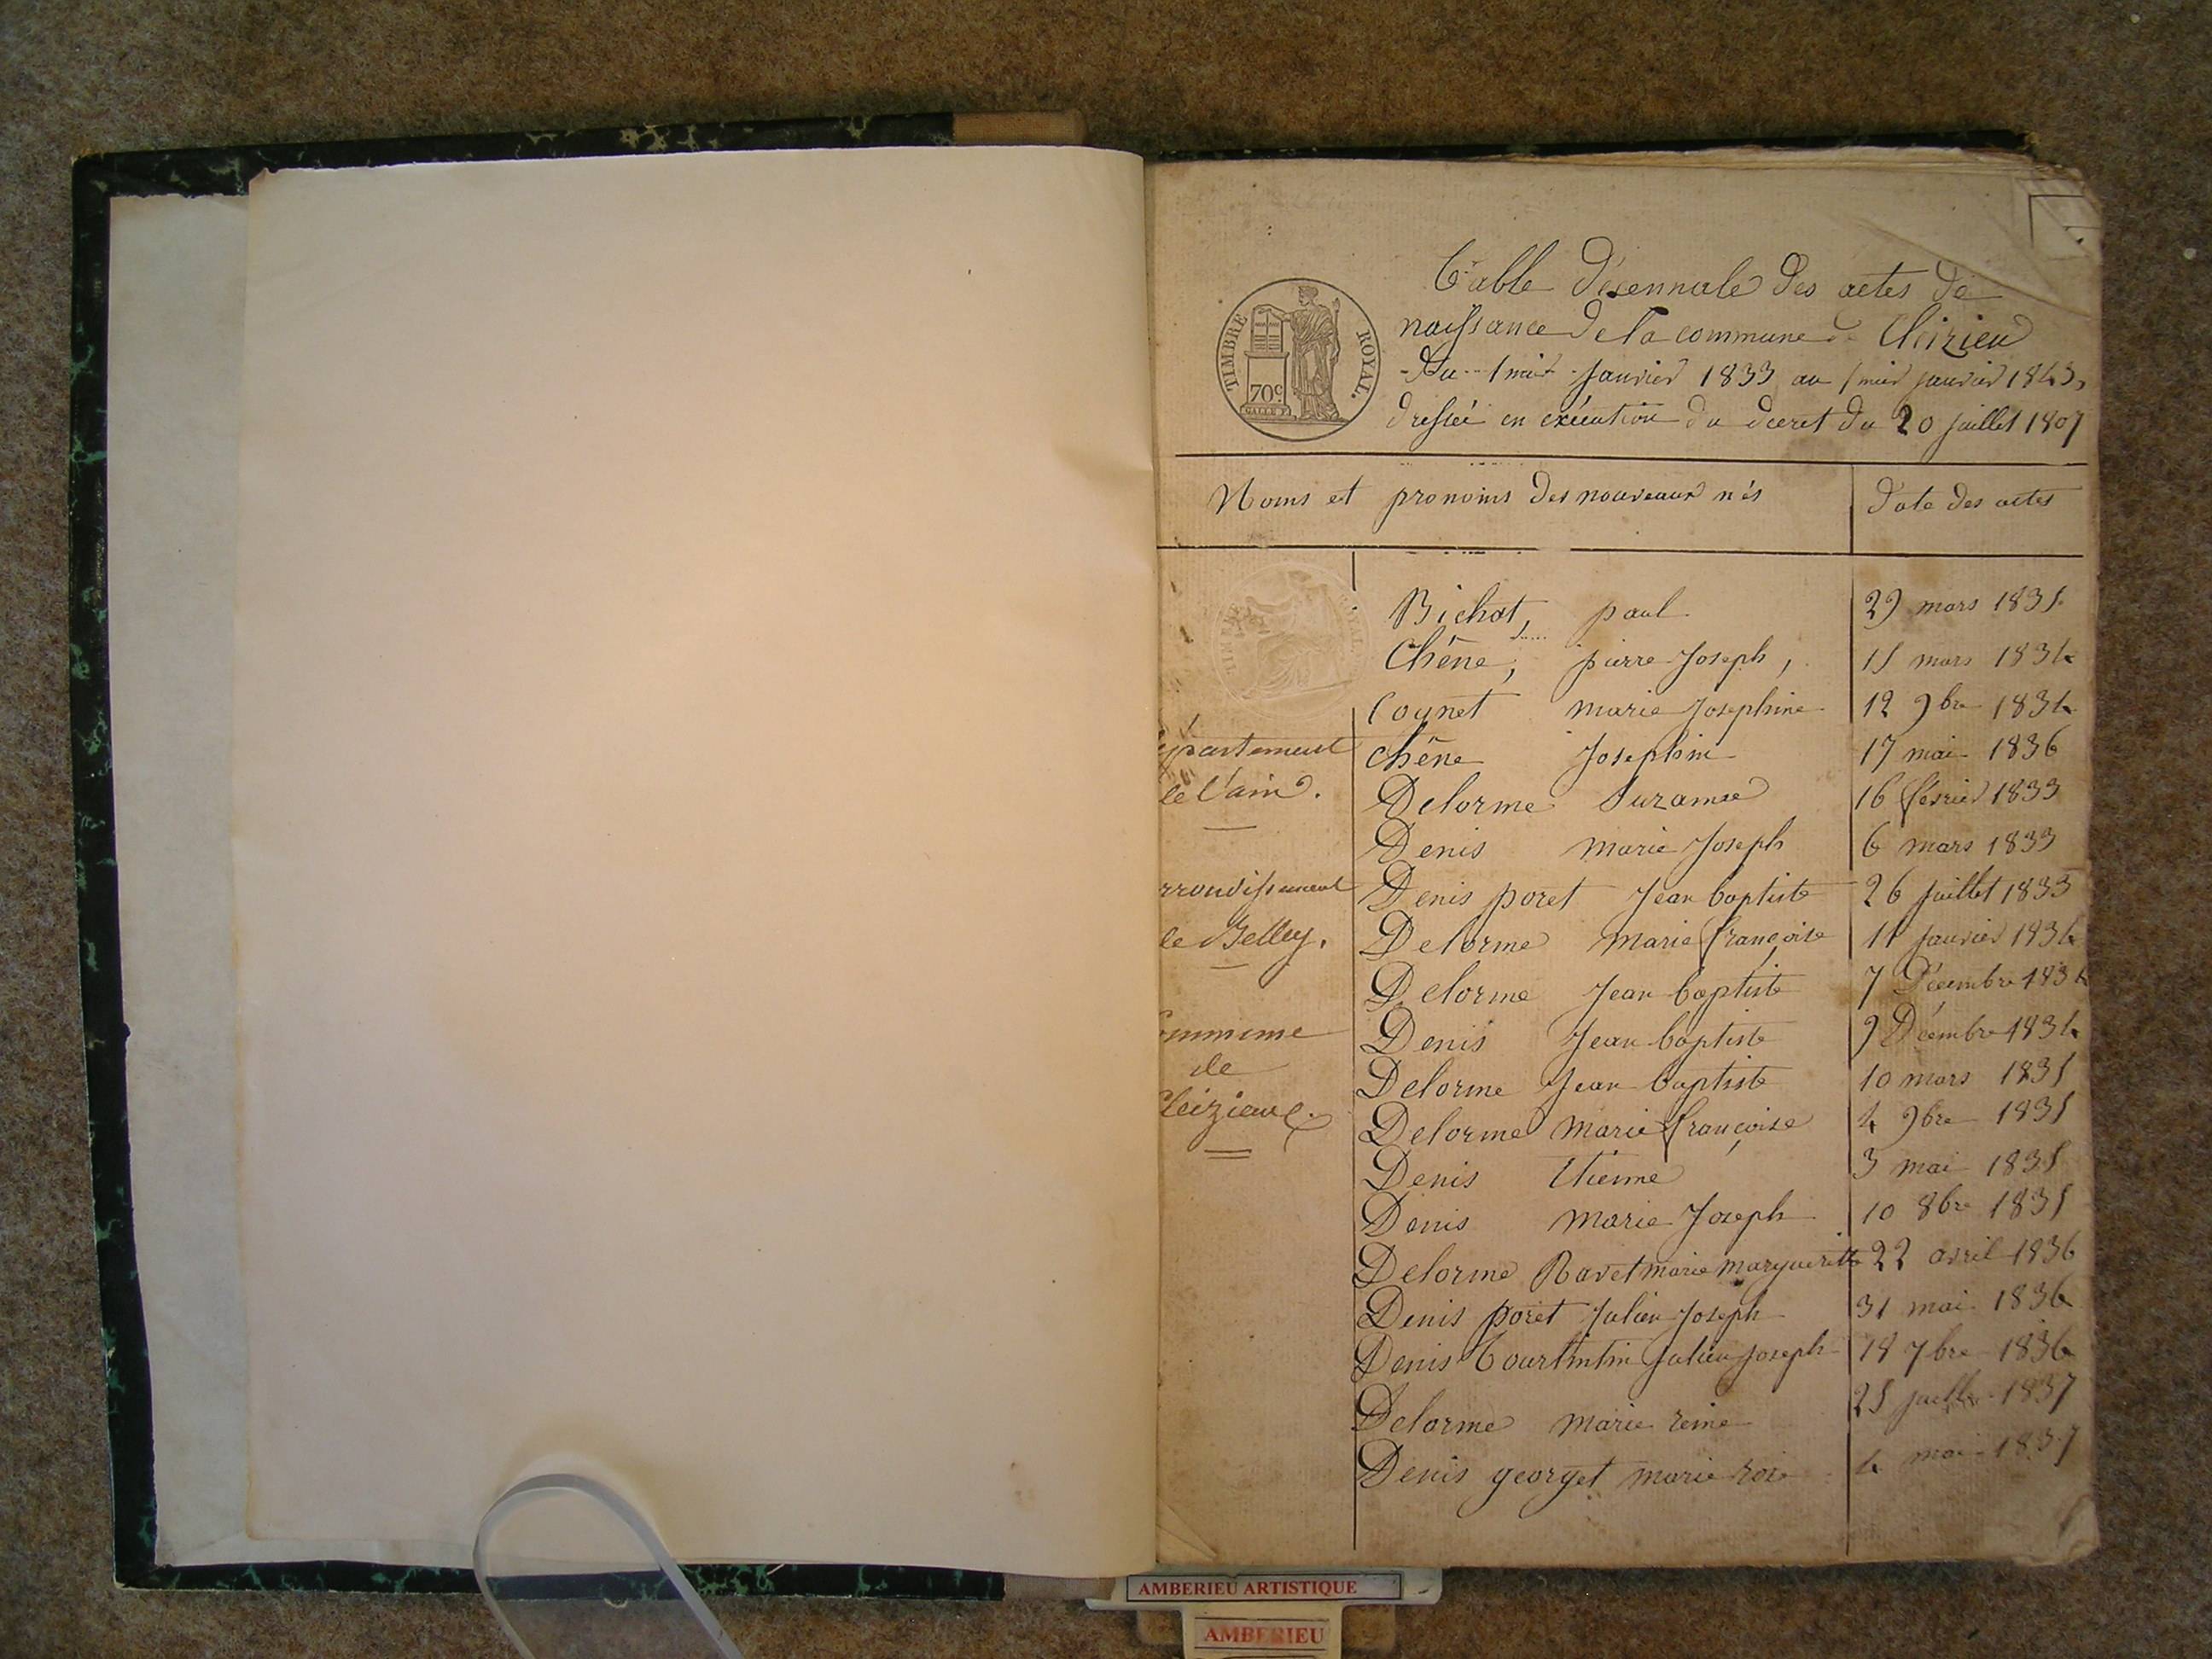 Table décennale des actes de
naissance de la commune de Cleizieu
Du 1mier Janvier 1833 au 1mier janvier 1843,
dressée en exécution du décret du 20 juillet 1807
TIMBRE ROYAL.
70c
Noms et pronoms des nouveaux nés Date des actes
Bichat, paul 29 mars 1835
Chêne, pierre Joseph, 15 mars 1834
Coynet marie Josephine 12 9bre 1834
épartement
de l'ain.
chêne Josephine 17 mai 1836
Delorme Suzanne 16 février 1833
Denis marie Joseph 6 mars 1833
rrondissement
de Belley.
Denis poret Jean baptiste 26 juillet 1833
Delorme marie françoise 11 janvier 1834
Delorme Jean baptiste 7 Décembre 1834
ommune
de
Cleizieux
Denis Jean baptiste 9 Décembre 1834
Delorme Jean baptiste 10 mars 1835
Delorme marie françoise 4 9bre 1835
Denis Etienne 3 mai 1835
Denis marie Joseph 10 8bre 1835
Delorme Ravet marie margueritte 22 avril 1836
Denis poret Julien Joseph 31 mai 1836
Denis Tourtintin Julien Joseph 18 7bre 1836
Delorme marie reine 25 juillet 1837
Denis georget marie rose 4 mai 1837
AMBERIEU ARTISTIQUE
AMBERIEU